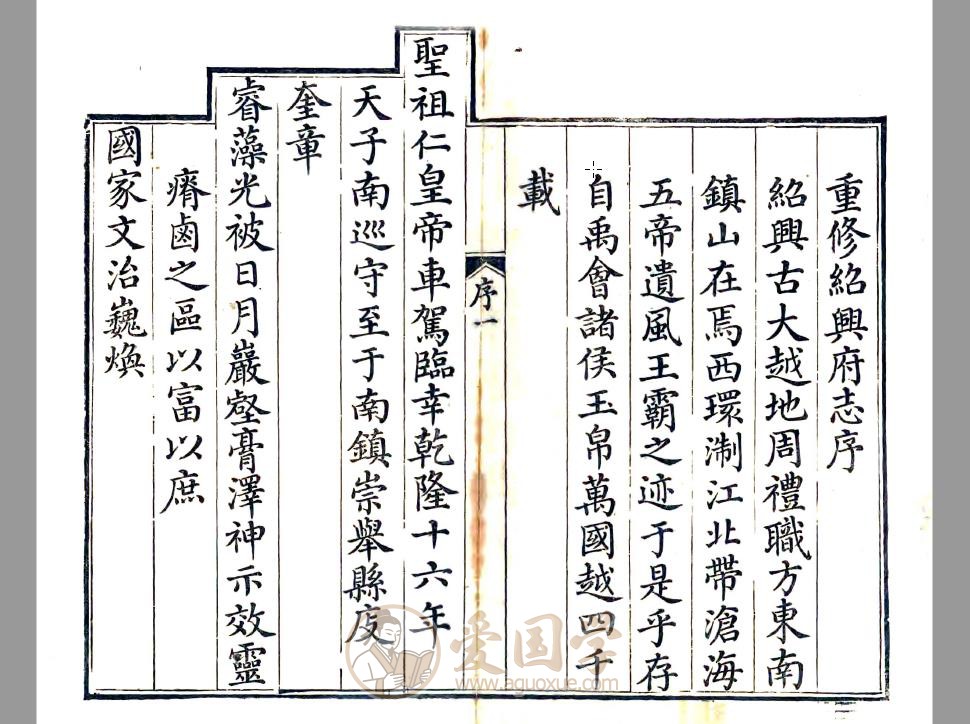 重修紹興府志序
紹興古大越地周禮職方東南
鎮山在焉西環淛江北帶滄海
五帝遺風王霸之迹于是乎存
自禹會諸侯玉帛萬國越四千
載
序一
聖祖仁皇帝車駕臨幸乾隆十六年
天子南巡守至于南鎮崇舉縣庋
奎章
睿藻光被日月巖壑膏澤神示效靈
瘠鹵之區以富以庶
國家文治巍煥
爱国学
www.aguoxue.com